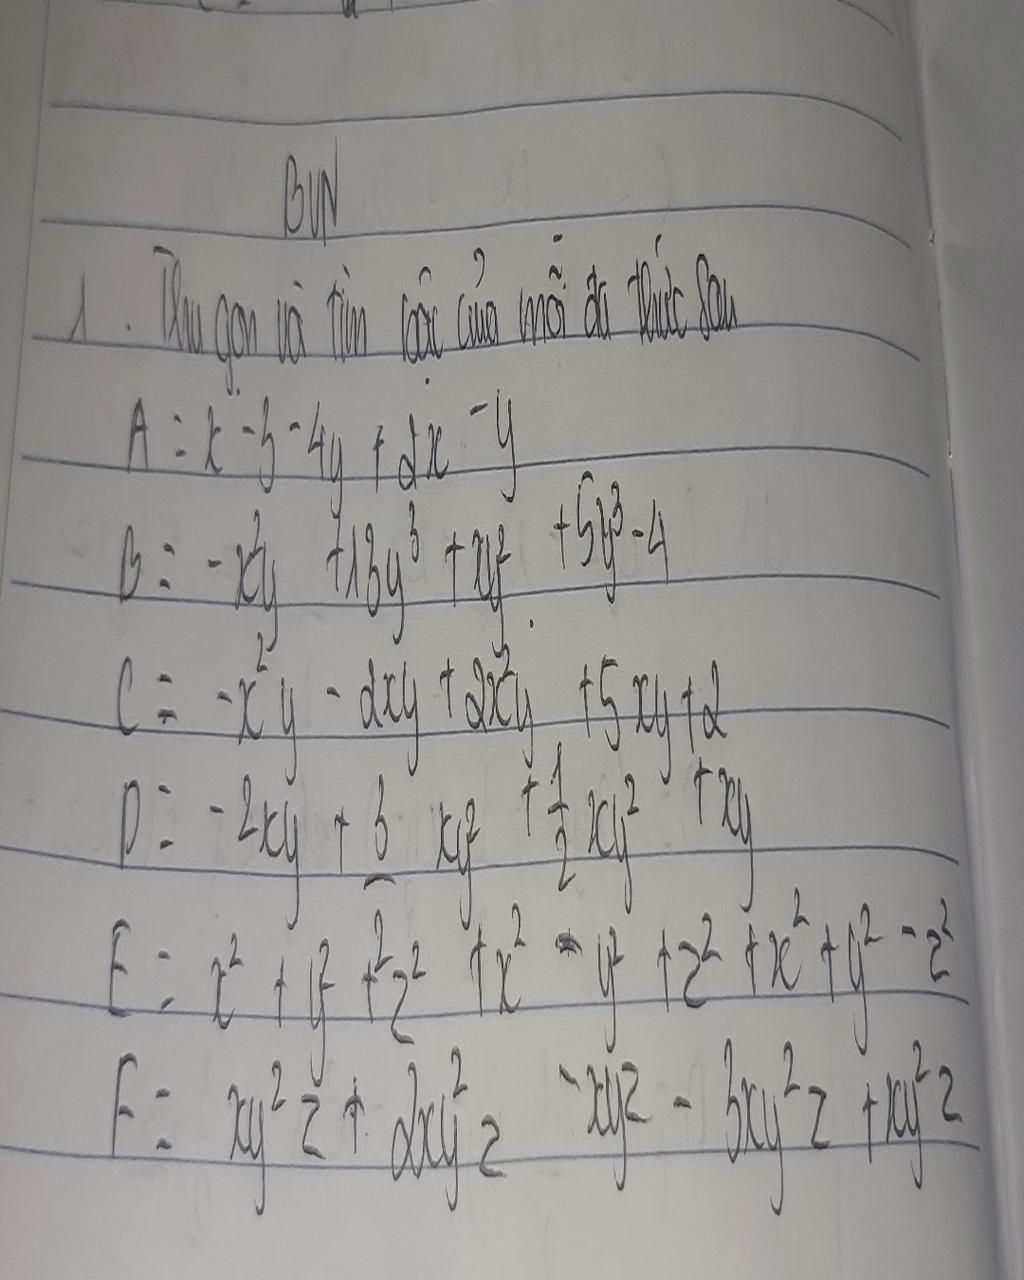 BVN
1. Thu gọn và tìm bậc của mỗi đa thức sau
A = x - 3 - 4y + 2x - y
B = -x²y + 13y³ + xy² + 5y³ - 4
C = -x²y - 2xy + 2x²y + 5xy + 2
D = -2xy + 3/2 xy² + 1/2 xy² + xy
E = x² + y² + z² + x² - y² + z² + x² + y² - z²
F = xy²z + 2xy²z - xyz - 3xy²z + xy²z